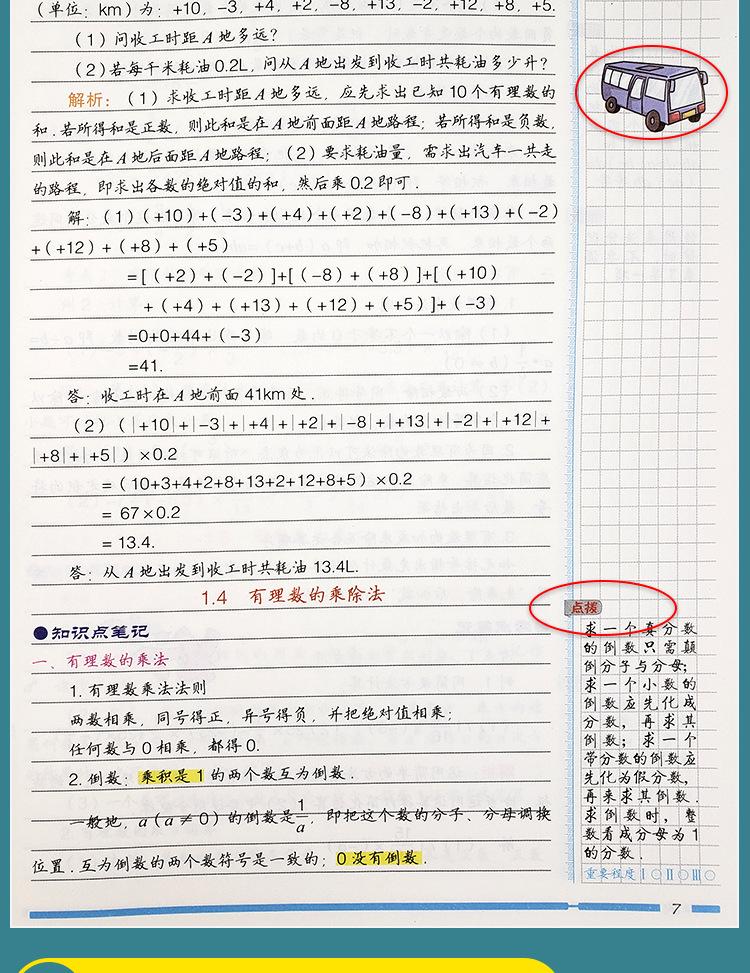 （单位：km）为：+10，-3，+4，+2，-8，+13，-2，+12，+8，+5.
（1）问收工时距A地多远？
（2）若每千米耗油0.2L，问从A地出发到收工时共耗油多少升？
解析：（1）求收工时距A地多远，应先求出已知10个有理数的
和．若所得和是正数，则此和是在A地前面距A地路程；若所得和是负数，
则此和是在A地后面距A地路程；（2）要求耗油量，需求出汽车一共走
的路程，即求出各数的绝对值的和，然后乘0.2即可．
解：（1）（+10）+（-3）+（+4）+（+2）+（-8）+（+13）+（-2）
+（+12）+（+8）+（+5）
=[（+2）+（-2）]+[（-8）+（+8）]+[（+10）
+（+4）+（+13）+（+12）+（+5）]+（-3）
=0+0+44+（-3）
=41.
答：收工时在A地前面41km处．
（2）（|+10|+|-3|+|+4|+|+2|+|-8|+|+13|+|-2|+|+12|+
|+8|+|+5|）×0.2
=（10+3+4+2+8+13+2+12+8+5）×0.2
= 67×0.2
= 13.4.
答：从A地出发到收工时共耗油13.4L.
1.4 有理数的乘除法
●知识点笔记
一、有理数的乘法
1. 有理数乘法法则
两数相乘，同号得正，异号得负，并把绝对值相乘；
任何数与0相乘，都得0.
2. 倒数：乘积是1的两个数互为倒数．
一般地，a（a≠0）的倒数是1/a，即把这个数的分子、分母调换
位置．互为倒数的两个数符号是一致的；0没有倒数．
点拨
求一个真分数
的倒数只需颠
倒分子与分母；
求一个小数的
倒数应先化成
分数，再求其
倒数；求一个
带分数的倒数应
先化为假分数，
再来求其倒数．
求倒数时，整
数看成分母为1
的分数．
重要程度 Ⅰ○Ⅱ○Ⅲ○
7